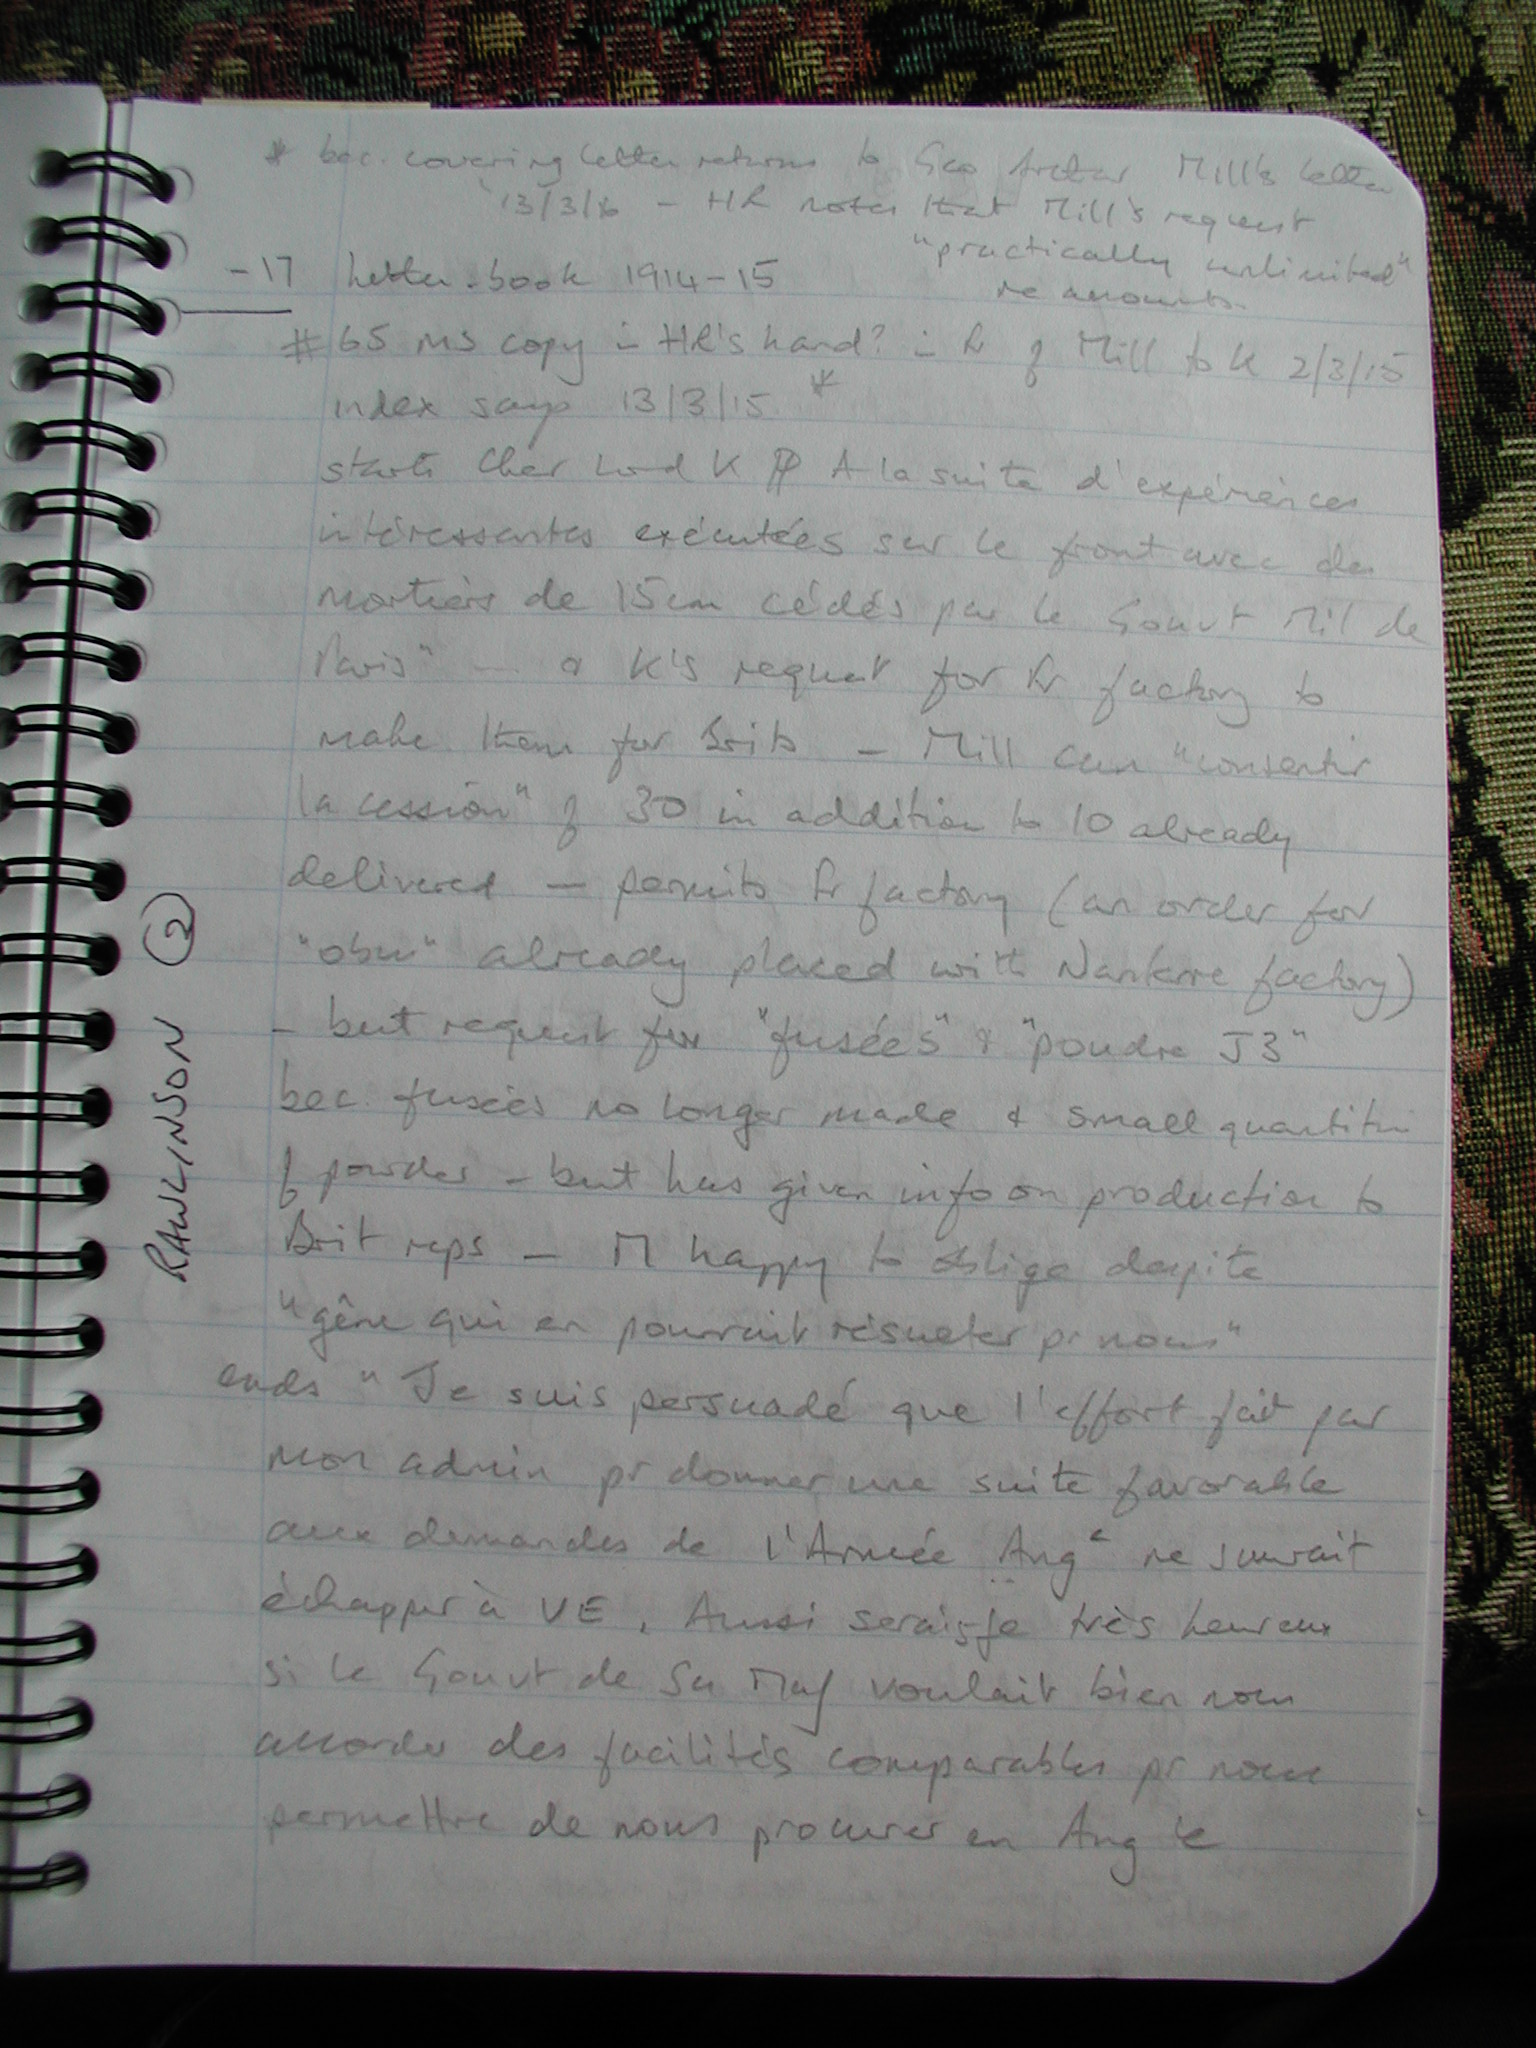 * bec. covering letter returns to Geo Arthur Mill's letter
13/3/16 – HR notes that Mill's request
"practically unlimited"
re amounts.
-17 Letter-book 1914-15
#65 MS copy in HR's hand? in Fr of Mill to K 2/3/15
index says 13/3/15 *
starts Cher Lord K ¶ A la suite d'expériences
intéressantes exécutées sur le front avec des
mortiers de 15cm cédés par le Gouvt Mil de
Paris" – & K's request for Fr factory to
make them for Brits – Mill can "consentir
la cession" of 30 in addition to 10 already
delivered – permits Fr factory (an order for
"obus" already placed with Nanterre factory)
– but request for "fusées" & "poudre J3"
bec. fusées no longer made & small quantities
of powder – but has given info on production to
Brit reps – M happy to oblige despite
"gêne qui en pourrait résulter pr nous"
ends "Je suis persuadé que l'effort fait par
mon admin pr donner une suite favorable
aux demandes de l'Armée Ange ne saurait
échapper à VE. Aussi serais-je très heureux
si le Gouvt de Sa Maj voulait bien nous
accorder des facilités comparables pr nous
permettre de nous procurer en Ang le
RAWLINSON 2